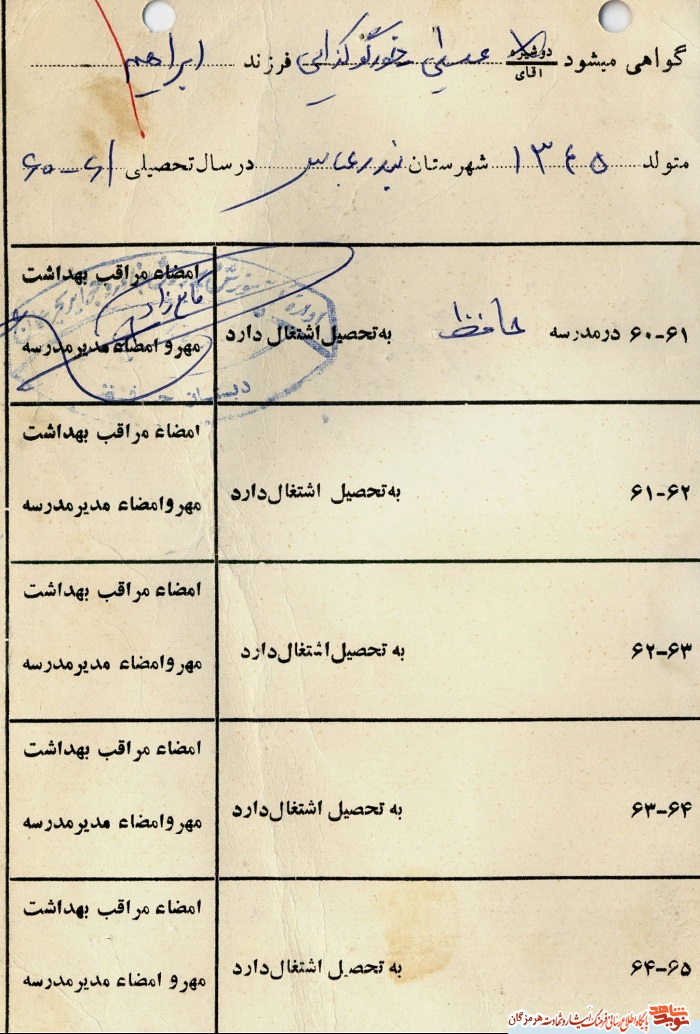 گواهی میشود دوشیزه آقای عیسی فرزند ابراهیم
متولد ۱۳۴۵ شهرستان بندرعباس در سال تحصیلی ۶۱-۶۰
۶۰-۶۱ در مدرسه حافظ به تحصیل اشتغال دارد
امضاء مراقب بهداشت
مهر و امضاء مدیر مدرسه
۶۱-۶۲ به تحصیل اشتغال دارد
امضاء مراقب بهداشت
مهر و امضاء مدیر مدرسه
۶۲-۶۳ به تحصیل اشتغال دارد
امضاء مراقب بهداشت
مهر و امضاء مدیر مدرسه
۶۳-۶۴ به تحصیل اشتغال دارد
امضاء مراقب بهداشت
مهر و امضاء مدیر مدرسه
۶۴-۶۵ به تحصیل اشتغال دارد
امضاء مراقب بهداشت
مهر و امضاء مدیر مدرسه
نوید شاهد پایگاه اطلاع رسانی فرهنگ ایثار و شهادت هرمزگان